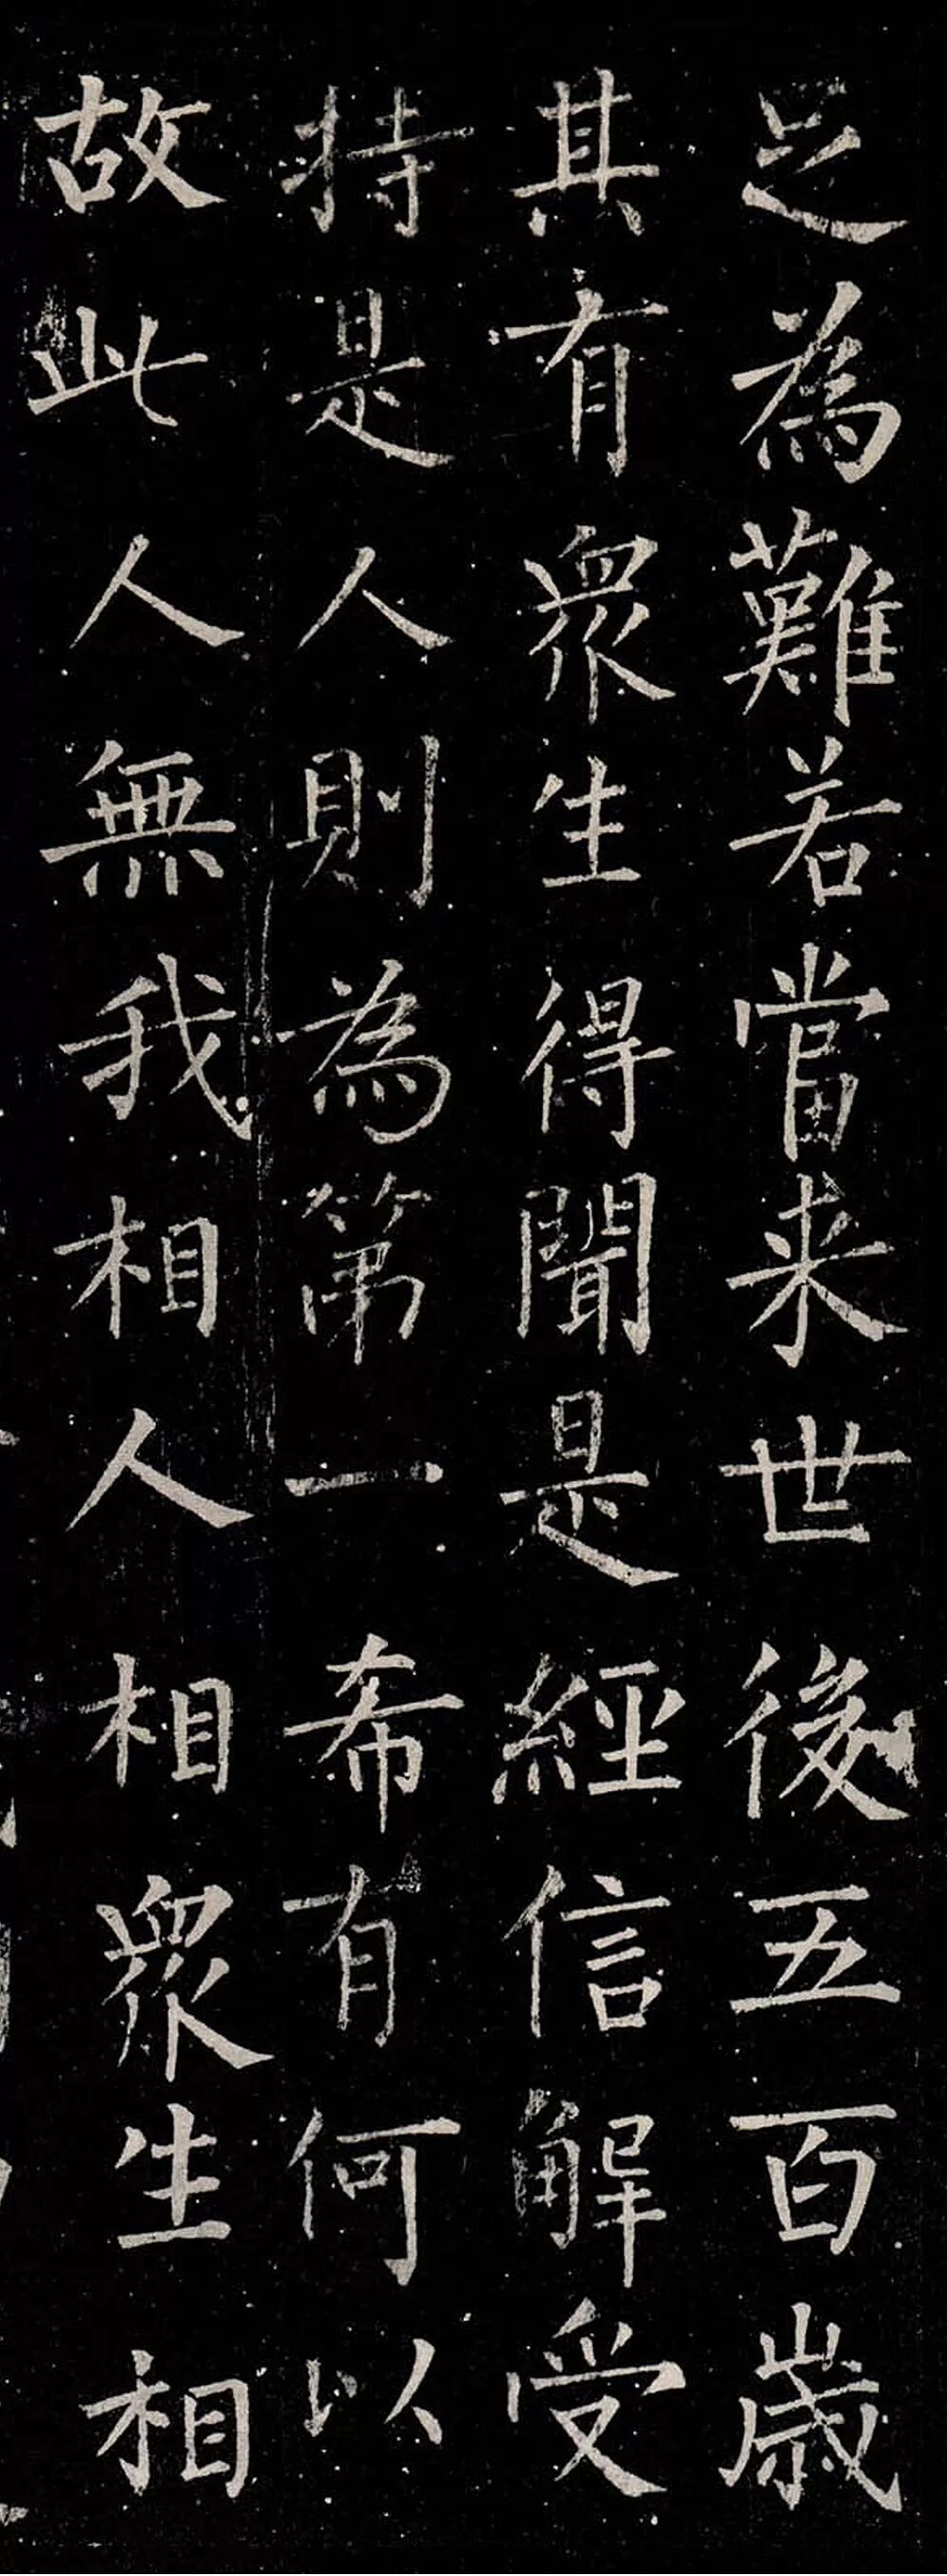 足為難若當来世後五百歲
其有眾生得聞是經信解受
持是人則為第一希有何以
故此人無我相人相眾生相